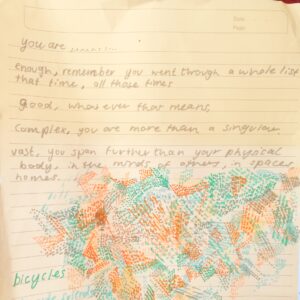 Date
Page
you are ..........
enough, remember you went through a whole list
that time, all those times
good, whatever that means,
complex, you are more than a singular
vast, you span further than your physical
body, in the minds of others, in spaces,
homes.
bicycles